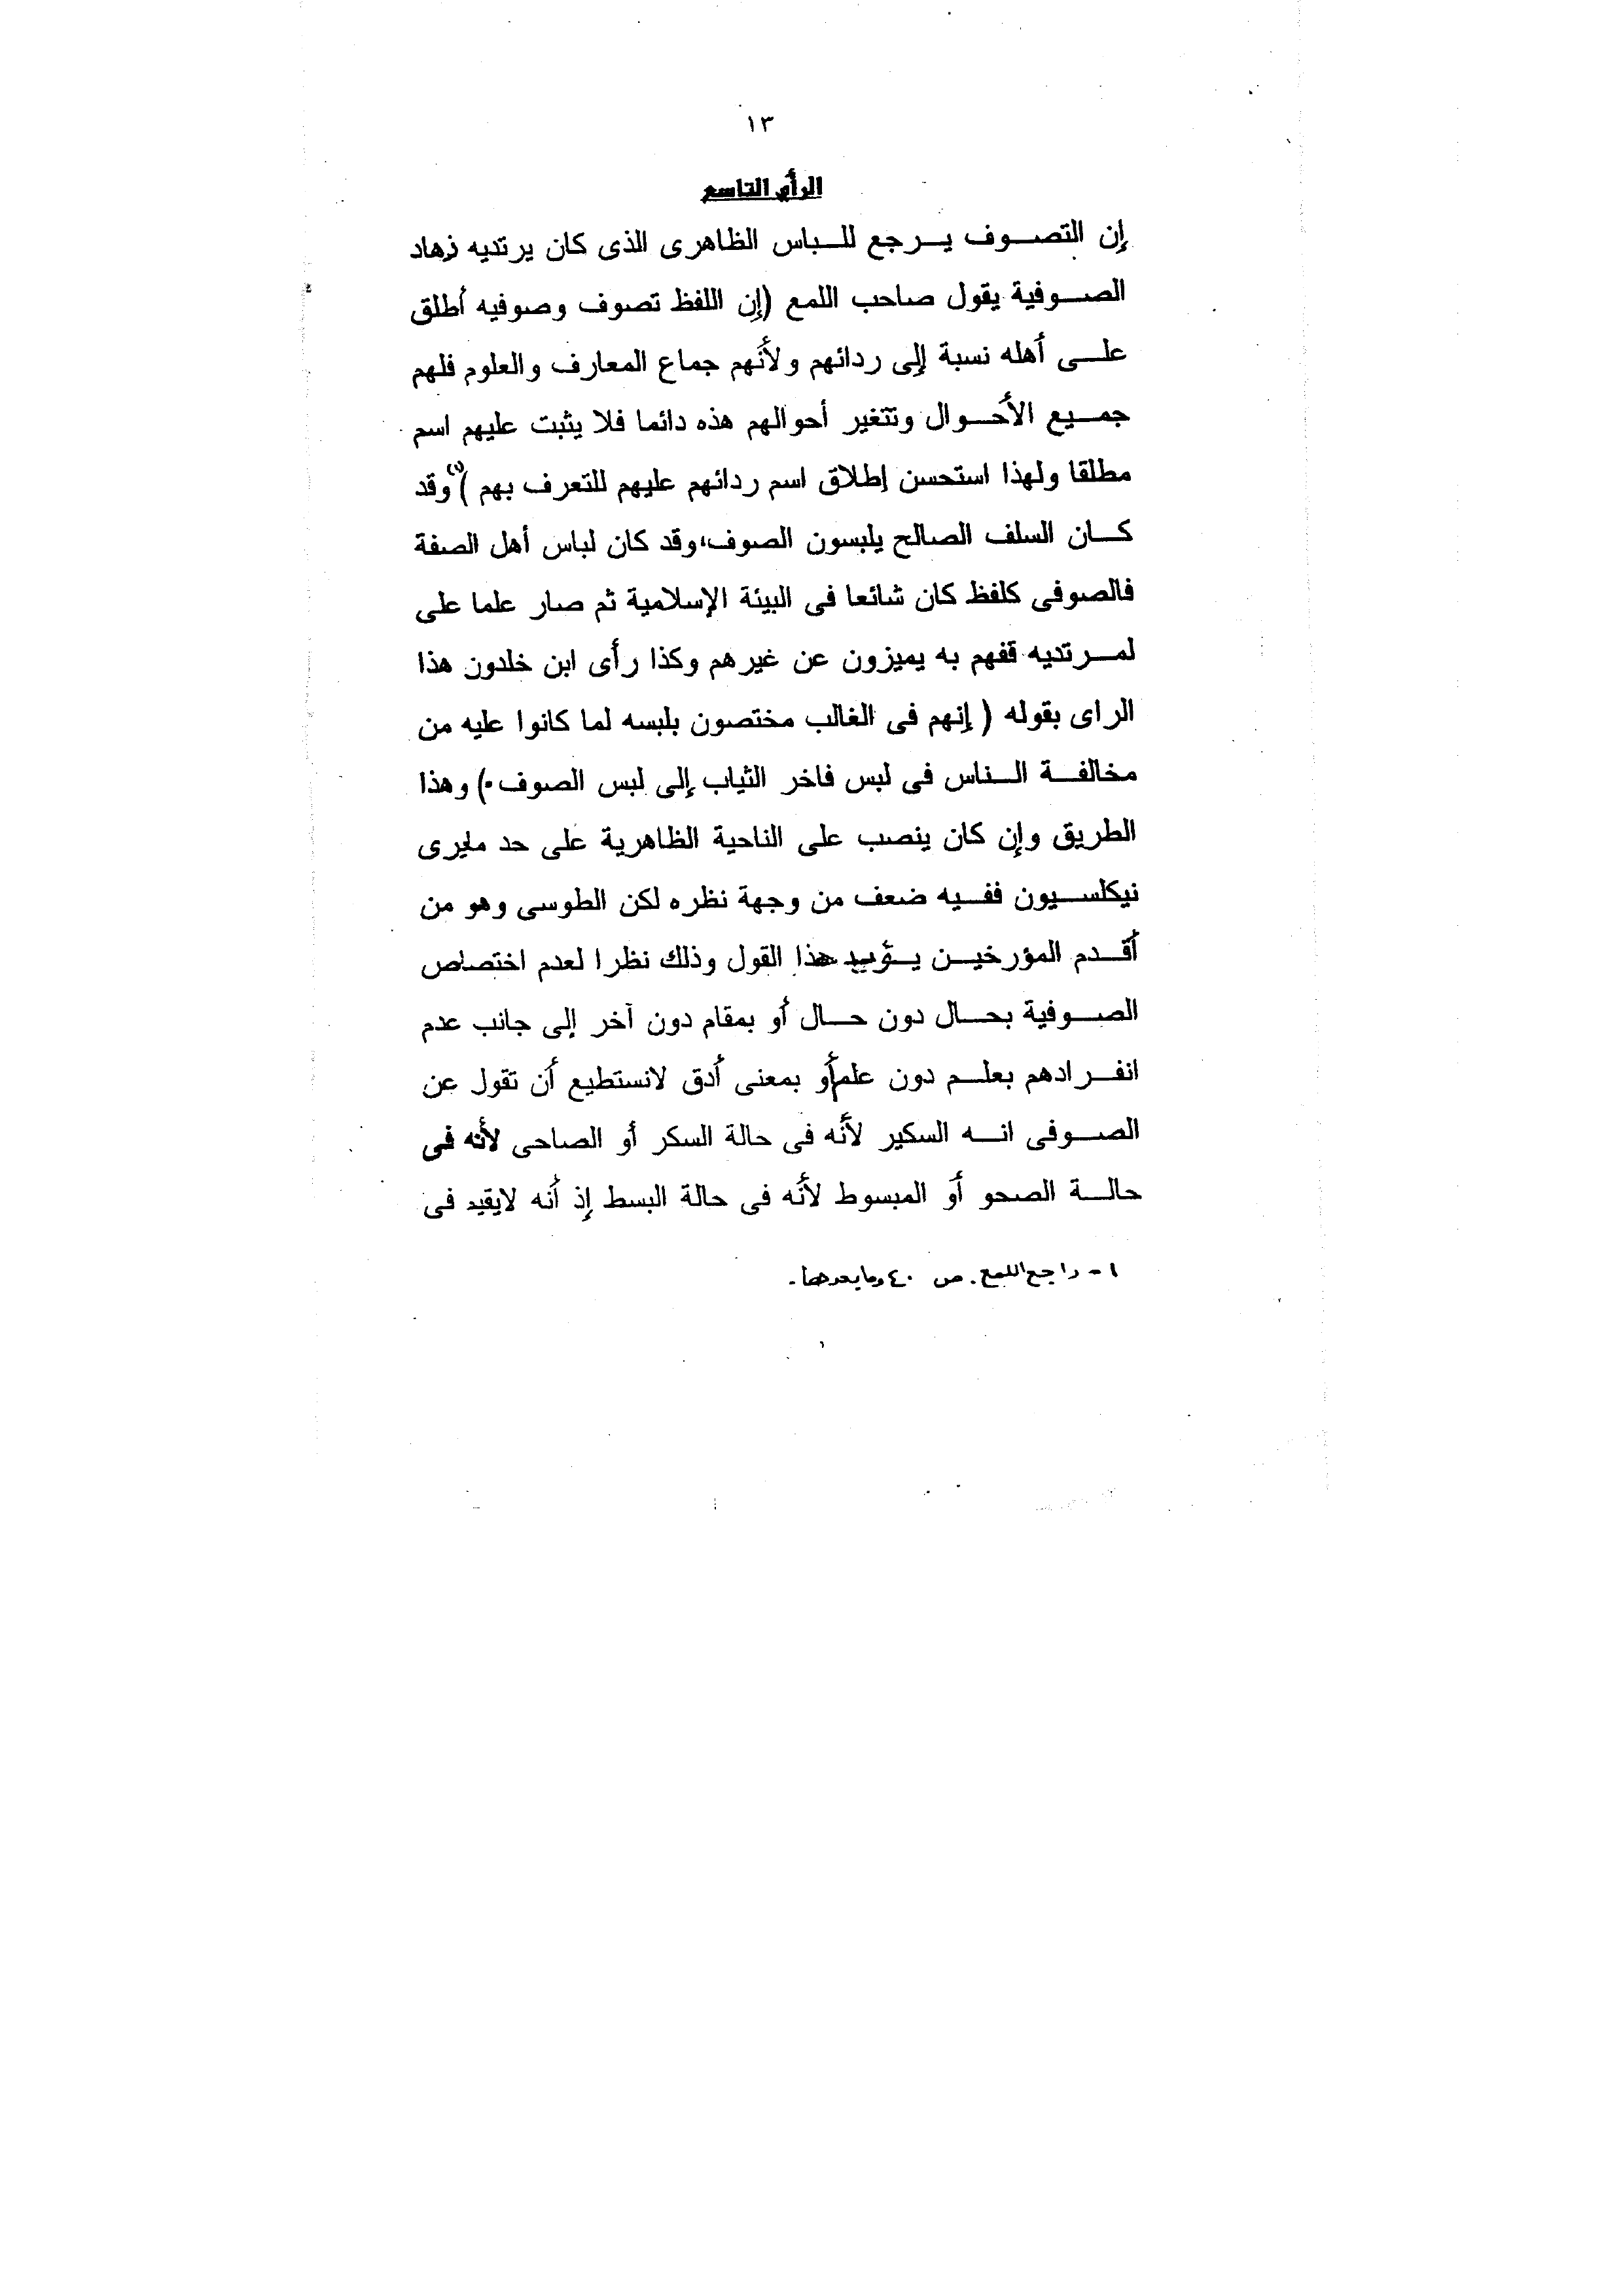 ١٣
الرأى التاسع
إن التصوف يرجع للباس الظاهرى الذى كان يرتديه زهاد
الصوفية يقول صاحب اللمع (إن اللفظ تصوف وصوفيه أطلق
على أهله نسبة إلى ردائهم ولأنهم جماع المعارف والعلوم فلهم
جميع الأحوال وتتغير أحوالهم هذه دائما فلا يثبت عليهم اسم
مطلقا ولهذا استحسن إطلاق اسم ردائهم عليهم للتعرف بهم )(١) وقد
كان السلف الصالح يلبسون الصوف، وقد كان لباس أهل الصفة
فالصوفى كلفظ كان شائعا فى البيئة الإسلامية ثم صار علما على
لمرتديه قفهم به يميزون عن غيرهم وكذا رأى ابن خلدون هذا
الراى بقوله ( إنهم فى الغالب مختصون بلبسه لما كانوا عليه من
مخالفة الناس فى لبس فاخر الثياب إلى لبس الصوف ٠) وهذا
الطريق وإن كان ينصب على الناحية الظاهرية على حد مايرى
نيكلسيون ففيه ضعف من وجهة نظره لكن الطوسى وهو من
أقدم المؤرخين يؤيد هذا القول وذلك نظرا لعدم اختصاص
الصوفية بحال دون حال أو بمقام دون آخر إلى جانب عدم
انفرادهم بعلم دون علم أو بمعنى أدق لانستطيع أن تقول عن
الصوفى انه السكير لأنه فى حالة السكر أو الصاحى لأنه فى
حالة الصحو أو المبسوط لأنه فى حالة البسط إذ أنه لايقيد فى
١ - راجع اللمع. ص ٤٠ وما بعدها.